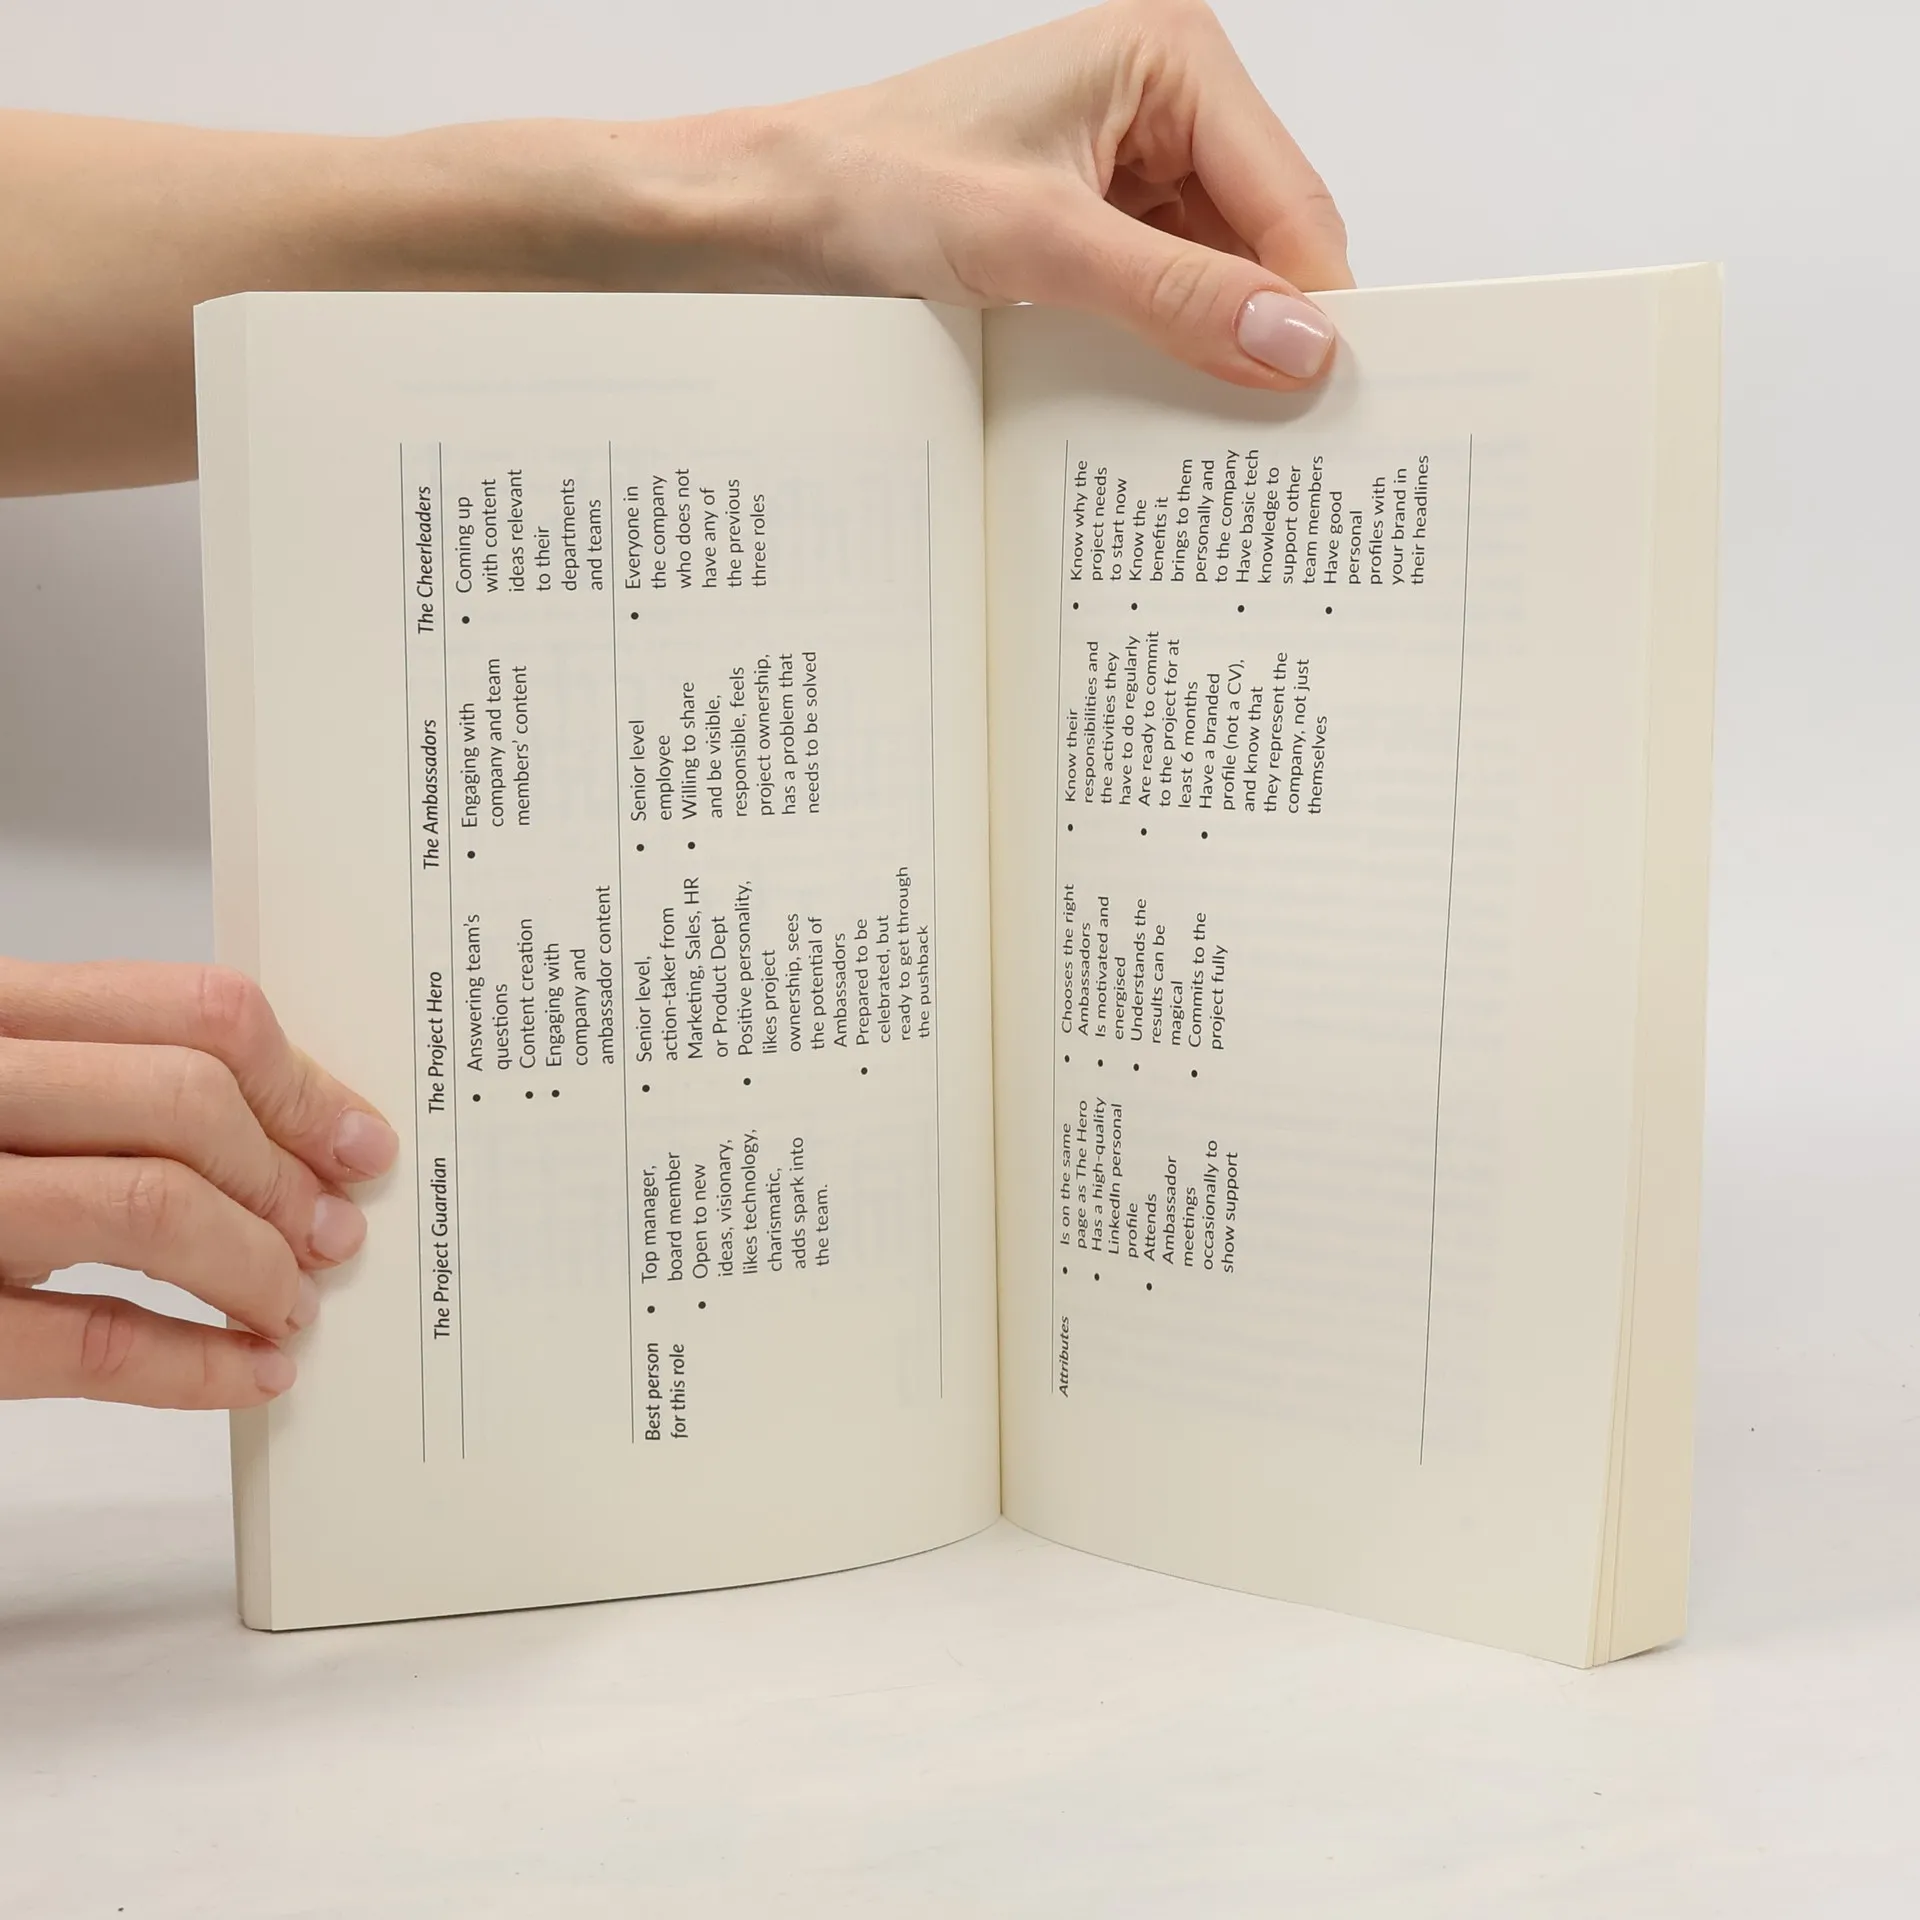 The Project Guardian
The Project Hero
The Ambassadors
The Cheerleaders
• Answering team's
questions
• Content creation
• Engaging with
company and
ambassador content
• Engaging with
company and team
members' content
• Coming up
with content
ideas relevant
to their
departments
and teams
Best person
for this role
• Top manager,
board member
• Open to new
ideas, visionary,
likes technology,
charismatic,
adds spark into
the team.
• Senior level,
action-taker from
Marketing, Sales, HR
or Product Dept
• Positive personality,
likes project
ownership, sees
the potential of
Ambassadors
• Prepared to be
celebrated, but
ready to get through
the pushback
• Senior level
employee
• Willing to share
and be visible,
responsible, feels
project ownership,
has a problem that
needs to be solved
• Everyone in
the company
who does not
have any of
the previous
three roles
Attributes
• Is on the same
page as The Hero
• Has a high-quality
LinkedIn personal
profile
• Attends
Ambassador
meetings
occasionally to
show support
• Chooses the right
Ambassadors
• Is motivated and
energised
• Understands the
results can be
magical
• Commits to the
project fully
• Know their
responsibilities and
the activities they
have to do regularly
• Are ready to commit
to the project for at
least 6 months
• Have a branded
profile (not a CV),
and know that
they represent the
company, not just
themselves
• Know why the
project needs
to start now
• Know the
benefits it
brings to them
personally and
to the company
• Have basic tech
knowledge to
support other
team members
• Have good
personal
profiles with
your brand in
their headlines